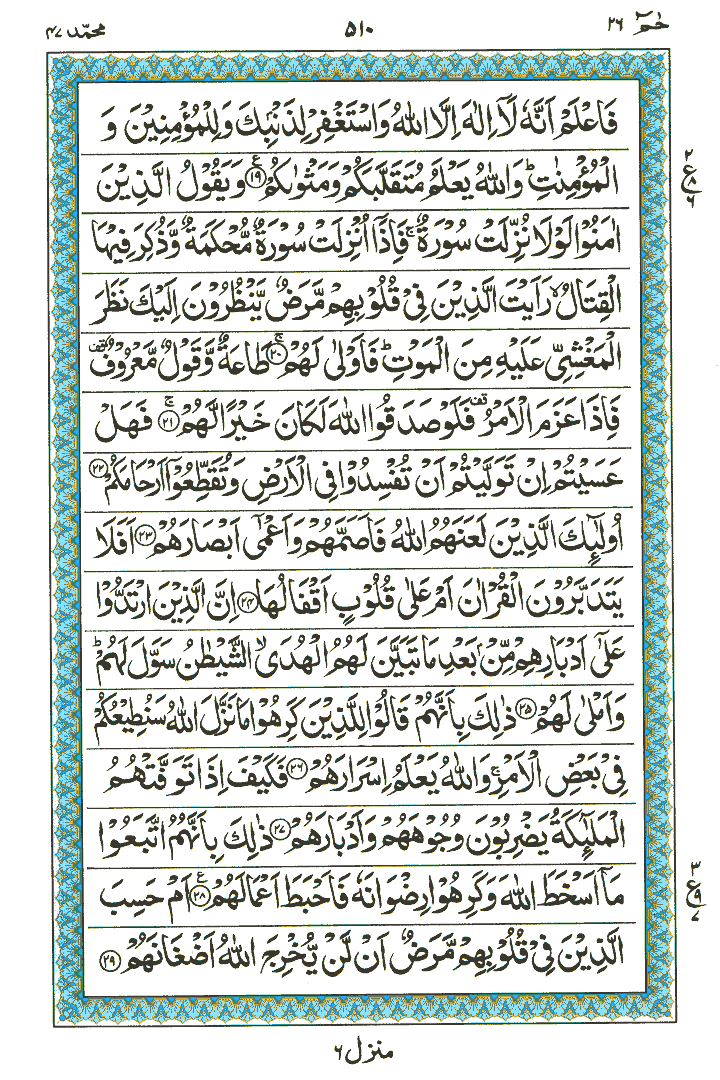 حٰمٓ ٢٦
٥١٠
محمّد ٤٧
فَاعۡلَمۡ اَنَّهٗ لَاۤ اِلٰهَ اِلَّا اللّٰهُ وَاسۡتَغۡفِرۡ لِذَنۡۢبِكَ وَلِلۡمُؤۡمِنِيۡنَ وَ
الۡمُؤۡمِنٰتِؕ وَاللّٰهُ يَعۡلَمُ مُتَقَلَّبَكُمۡ وَمَثۡوٰٮكُمۡ ع ﴿١٩﴾ وَيَقُوۡلُ الَّذِيۡنَ
٢ ع ٨ ٦
اٰمَنُوۡا لَوۡلَا نُزِّلَتۡ سُوۡرَةٌ ۚ فَاِذَاۤ اُنۡزِلَتۡ سُوۡرَةٌ مُّحۡكَمَةٌ وَّذُكِرَ فِيۡهَا
الۡقِتَالُۙ رَاَيۡتَ الَّذِيۡنَ فِىۡ قُلُوۡبِهِمۡ مَّرَضٌ يَّنۡظُرُوۡنَ اِلَيۡكَ نَظَرَ
الۡمَغۡشِىِّ عَلَيۡهِ مِنَ الۡمَوۡتِؕ فَاَوۡلٰى لَهُمۡ ۚ ﴿٢٠﴾ طَاعَةٌ وَّقَوۡلٌ مَّعۡرُوۡفٌ قف
فَاِذَا عَزَمَ الۡاَمۡرُ قف فَلَوۡ صَدَقُوا اللّٰهَ لَكَانَ خَيۡرًا لَّهُمۡ ۚ ﴿٢١﴾ فَهَلۡ
عَسَيۡتُمۡ اِنۡ تَوَلَّيۡتُمۡ اَنۡ تُفۡسِدُوۡا فِى الۡاَرۡضِ وَتُقَطِّعُوۡۤا اَرۡحَامَكُمۡ ﴿٢٢﴾
اُولٰٓٮِٕكَ الَّذِيۡنَ لَعَنَهُمُ اللّٰهُ فَاَصَمَّهُمۡ وَاَعۡمٰٓى اَبۡصَارَهُمۡ ﴿٢٣﴾ اَفَلَا
يَتَدَبَّرُوۡنَ الۡقُرۡاٰنَ اَمۡ عَلٰى قُلُوۡبٍ اَقۡفَالُهَا ﴿٢٤﴾ اِنَّ الَّذِيۡنَ ارۡتَدُّوۡا
عَلٰٓى اَدۡبَارِهِمۡ مِّنۡۢ بَعۡدِ مَا تَبَيَّنَ لَهُمُ الۡهُدَىۙ الشَّيۡطٰنُ سَوَّلَ لَهُمۡؕ
وَاَمۡلٰى لَهُمۡ ﴿٢٥﴾ ذٰلِكَ بِاَنَّهُمۡ قَالُوۡا لِلَّذِيۡنَ كَرِهُوۡا مَا نَزَّلَ اللّٰهُ سَنُطِيۡعُكُمۡ
فِىۡ بَعۡضِ الۡاَمۡرِ ۚ وَاللّٰهُ يَعۡلَمُ اِسۡرَارَهُمۡ ﴿٢٦﴾ فَكَيۡفَ اِذَا تَوَفَّتۡهُمُ
الۡمَلٰٓٮِٕكَةُ يَضۡرِبُوۡنَ وُجُوۡهَهُمۡ وَاَدۡبَارَهُمۡ ﴿٢٧﴾ ذٰلِكَ بِاَنَّهُمُ اتَّبَعُوۡا
مَاۤ اَسۡخَطَ اللّٰهَ وَكَرِهُوۡا رِضۡوَانَهٗ فَاَحۡبَطَ اَعۡمَالَهُمۡ ع ﴿٢٨﴾ اَمۡ حَسِبَ
٣ ع ٩ ٧
الَّذِيۡنَ فِىۡ قُلُوۡبِهِمۡ مَّرَضٌ اَنۡ لَّنۡ يُّخۡرِجَ اللّٰهُ اَضۡغَانَهُمۡ ﴿٢٩﴾
منزل ٦